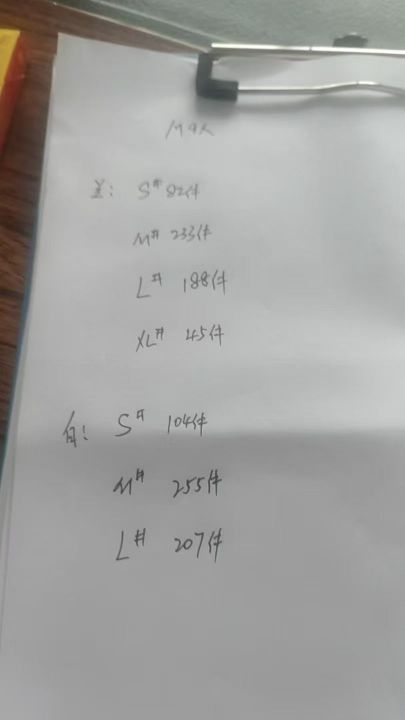 S# 82件
M# 233件
L# 188件
XL# 45件
白: S# 104件
M# 255件
L# 207件